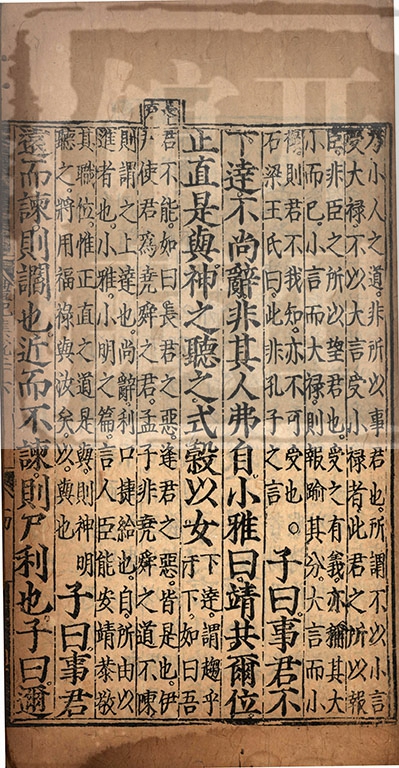 乃小人之道。非所以事君也。所謂不以小言
受大祿。不以大言受小祿者。此君之所以報
臣。非臣之所以望君也。受之有義。亦稱其大
小而已。小言而大祿。則報踰其分。大言而小
祿。則君不我知。亦不可受也。○
石梁王氏曰。此非孔子之言
子曰。事君不
下達。不尚辭。非其人弗自。小雅曰。靖共爾位。
正直是與。神之聽之。式穀以女
下達。謂趨乎
汙下。如曰吾
君不能。如曰長君之惡。逢君之惡。皆是也。伊
尹使君爲堯舜之君。孟子非堯舜之道不陳
則謂之上達也。尚辭利口捷給也。自。所由以
進者也。小雅。小明之篇。言人臣能安靖恭敬
其職位。惟正直之道是與。則神明
聽之。將用福祿與汝矣。以。與也
子曰。事君
遠而諫則讇也。近而不諫則尸利也。子曰。邇